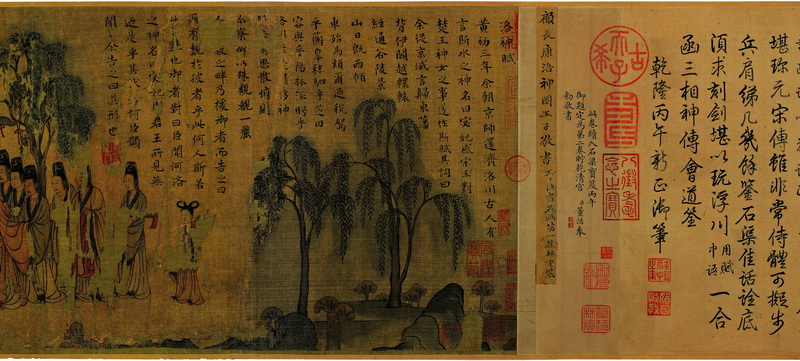 堪珎元宋傳雖非常侍體可擬步
兵肩綈几幾餘鑒石渠佳話詮底
須求刻劍堪以玩浮川用賦中語一合
函三相神傳會道筌
乾隆丙午新正御筆
古希天子
八徵耄念之寶
此卷續入石渠寶笈丙午
御題定為第二卷貯乾清宮 臣董誥奉
勅敬書
顧長康洛神圖王子敬書
洛神賦
黃初三年余朝京師還濟洛川古人有
言斯水之神名曰宓妃感宋玉對
楚王神女之事遂作斯賦其詞曰
余從京城言歸東藩
背伊闕越轘轅
經通谷陵景
山日既西傾
車殆馬煩爾迺稅駕
乎蘅皋秣駟乎芝田
容與乎陽林流眄乎
洛川於是精移神
駭忽焉思散俯則
未察仰以殊觀覩一麗
人於巖之畔乃援御者而告之曰
爾有覿於彼者乎此何人斯若
此之艷也御者對曰臣聞河洛
之神名曰宓妃則君王所見無
迺是乎其狀若何臣願
聞之余告之曰其形也